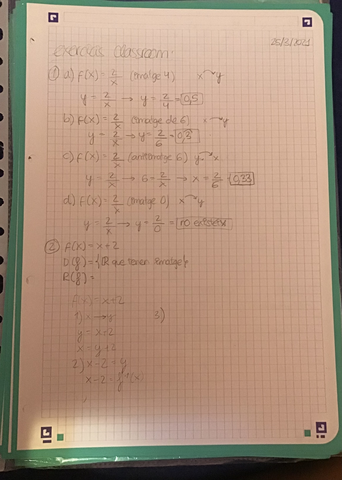 25/2/2021
exercicis classroom.
① a) f(x) = 2/x (imatge 4) x → y
y = 2/x → y = 2/4 = 0,5
b) f(x) = 2/x (imatge de 6) x → y
y = 2/x → y = 2/6 = 0,3
c) f(x) = 2/x (antiimatge 6) y → x
y = 2/x → 6 = 2/x → x = 2/6 = 0,33
d) f(x) = 2/x (imatge 0) x → y
y = 2/x → y = 2/0 = no existeix
② f(x) = x+2
D(f) = {ℝ que tenen imatge}
R(f) =
f(x) = x+2
1) x → y 3)
y = x+2
x = y+2
2) x-2 = y
x-2 = f⁻¹(x)